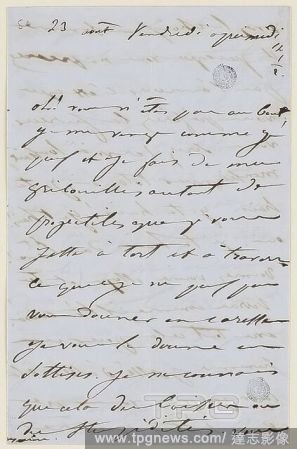 23 août Vendredi après midi
1 ½
oh! vous n'êtes pas au bout
Je me venge comme je
puis et je fais de mes
gribouillis autant de
projectiles que je vous
jette à tort et à travers
ce que je ne puis pas
vous donner en caresses
je vous le donne en
sottises. Je ne connais
que cela
TPG
www.tpgnews.com / 達志影像